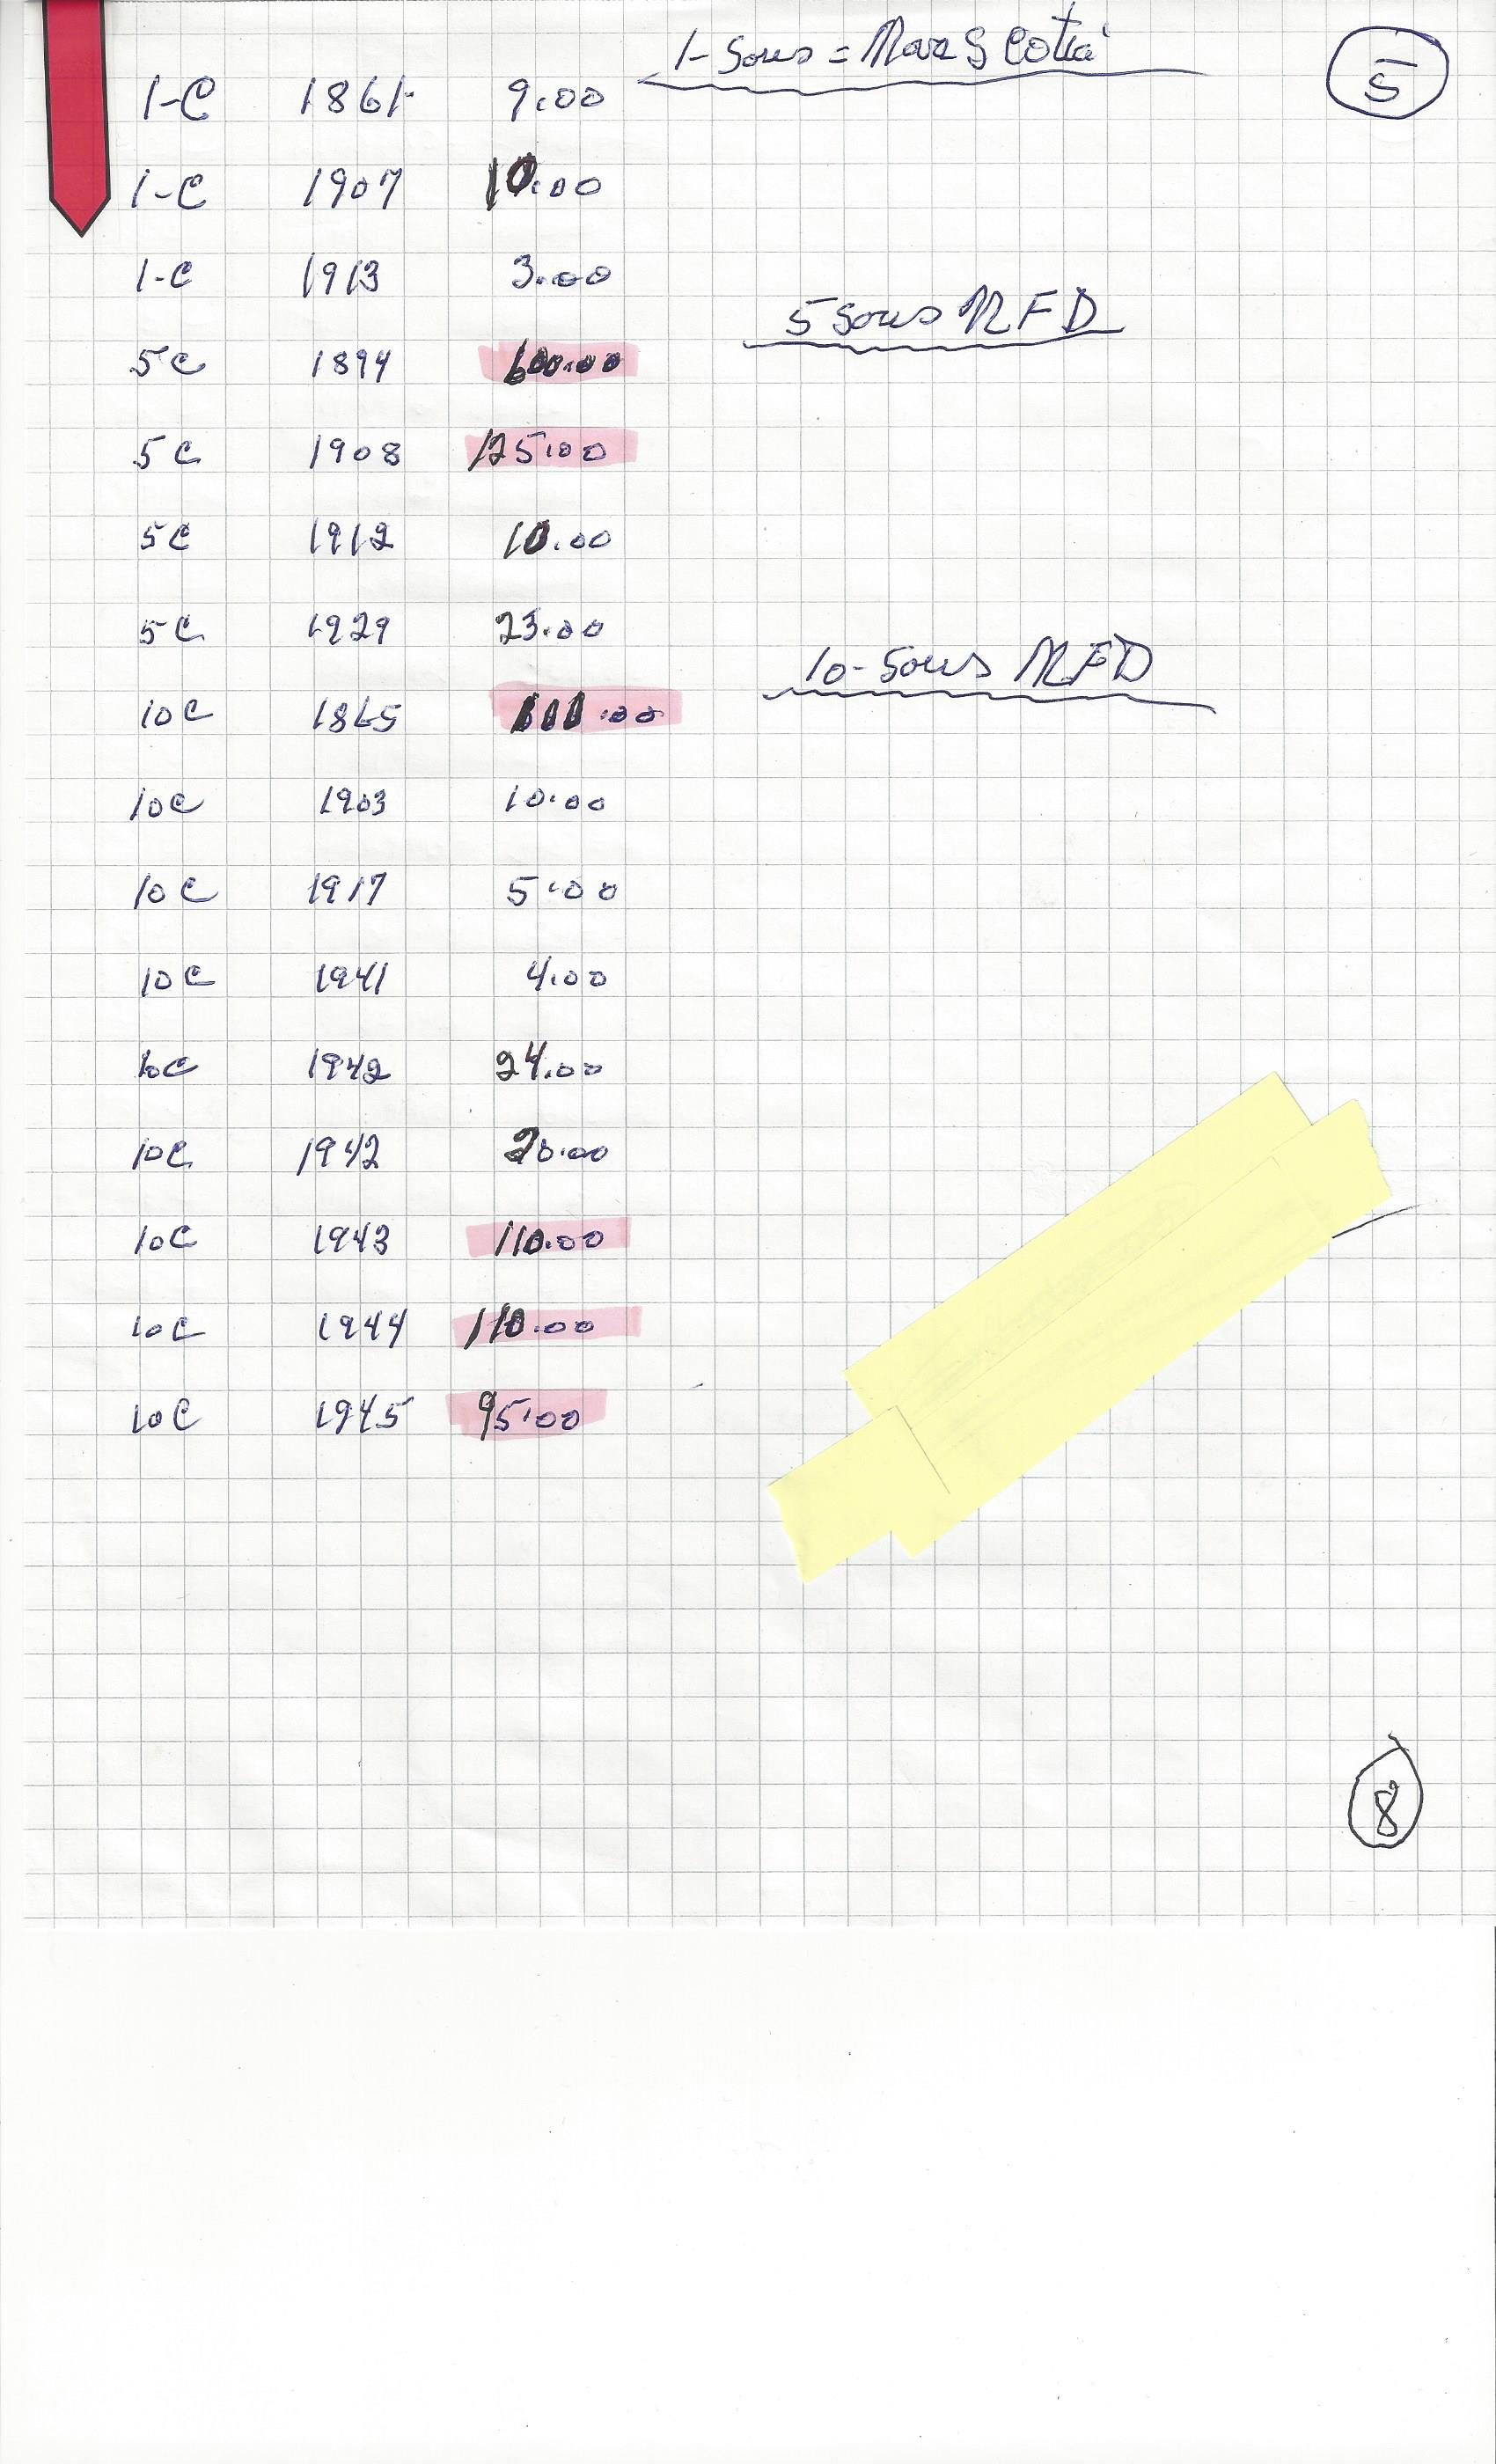 1-Sous = Nova Scotia
5
1-C 1861 9.00
1-C 1907 10.00
1-C 1913 3.00
5 Sous NFD
5C 1894 600.00
5C 1908 125.00
5C 1912 10.00
5C 1929 23.00
10-Sous NFD
10C 1865 .00
10C 1903 10.00
10C 1917 5.00
10C 1941 4.00
10C 1942 24.00
10C 1942 20.00
10C 1943 110.00
10C 1944 110.00
10C 1945 95.00
8